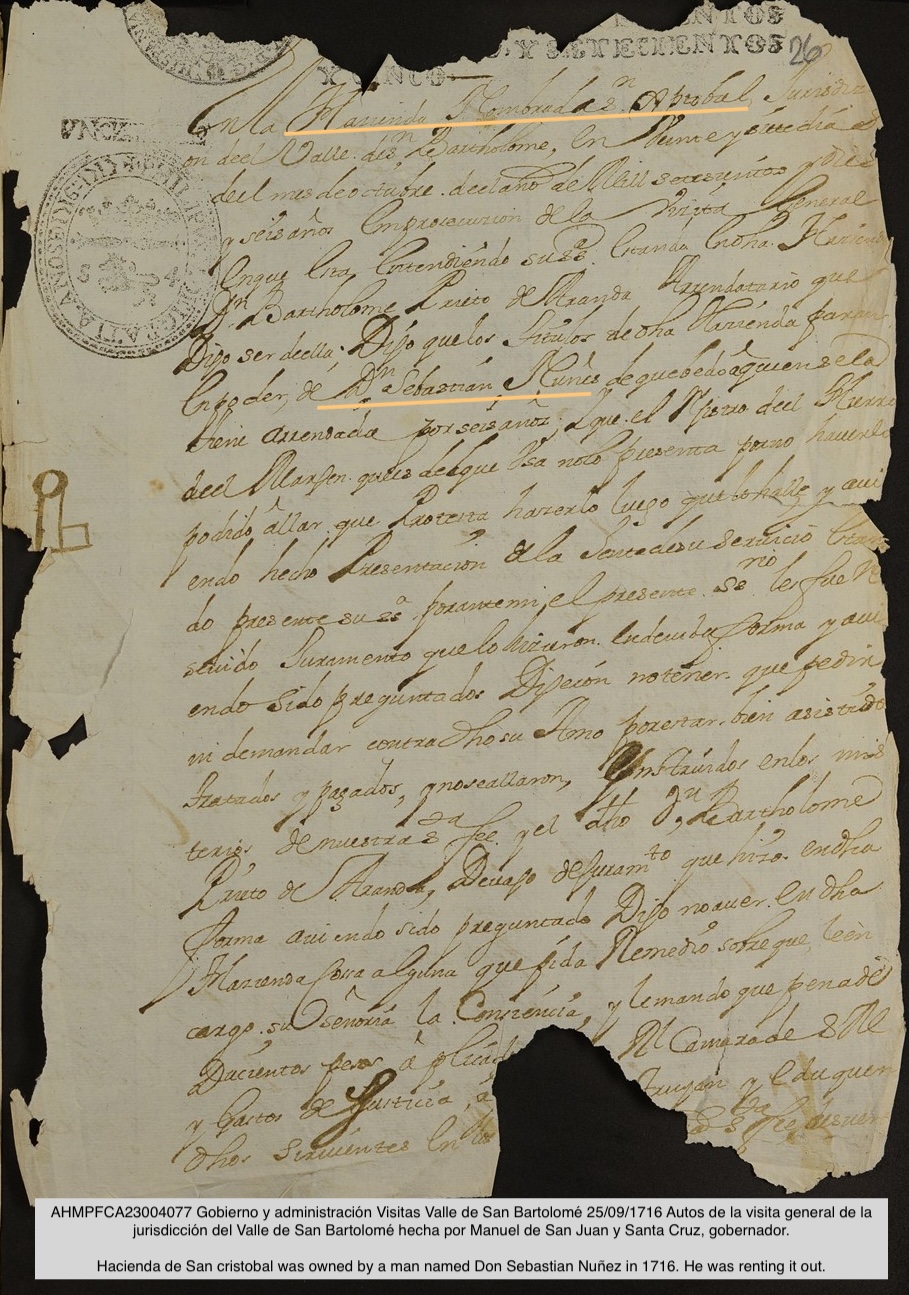 ENTOS
Y CINCO Y SETECIENTOS 26
En la Hazienda Nombrada Sn Xptobal, Jurisdizi
on del Valle de sn Bartholome, en Veinte y siete dias
del mes de octubre del año de Mill setesientos y Dies
y seis años En prosecucion de la Vizita General
En que Esta Entendiendo su ssa Estando En dha Hazienda
Dn Bartholome Prieto de Aranda Arrendatario que
Dijo ser de ella; Dijo que los titulos de dha Hazienda paran
En poder, de Dn Sebastián Nunes de quebedo â quien se la
tiene arrendada por seis años, y que el Yierro del Hierro
del Marjen que es del que Usa no lo presenta por no haverlo
podido âllar que Protesta hazerlo luego que lo halle y avi
endo hecho Presentación de la Jente de su serVicio Estan
do presente su ssa por ante mi, el presente ssrio les fue Re
sevido Juramento que lo hizieron En devida forma y avi
endo sido preguntados Dijeron no tener que pedir
ni demandar contra dho su Amo por estar bien asistidos
tratados y pagados, y nose allaron, Ynstruidos en los mis
terios de nuestra sta fee y el dho Dn Bartholome
Prieto de Aranda, Devajo de Juramto que hizo en dha
forma aviendo sido preguntado Dijo no aver En dha
Hazienda Cosa alguna que pida Remedio sobre que, le en
cargo su Señoria la Consiencia, y le mando que pena de
Ducientos pesos â plicad Rl Camara de S M
y Gastos de Justicia, a truyan y eduquen
dhos sirvientes En los sta fee
AHMPFCA23004077 Gobierno y administración Visitas Valle de San Bartolomé 25/09/1716 Autos de la visita general de la
jurisdicción del Valle de San Bartolomé hecha por Manuel de San Juan y Santa Cruz, gobernador.
Hacienda de San cristobal was owned by a man named Don Sebastian Nuñez in 1716. He was renting it out.